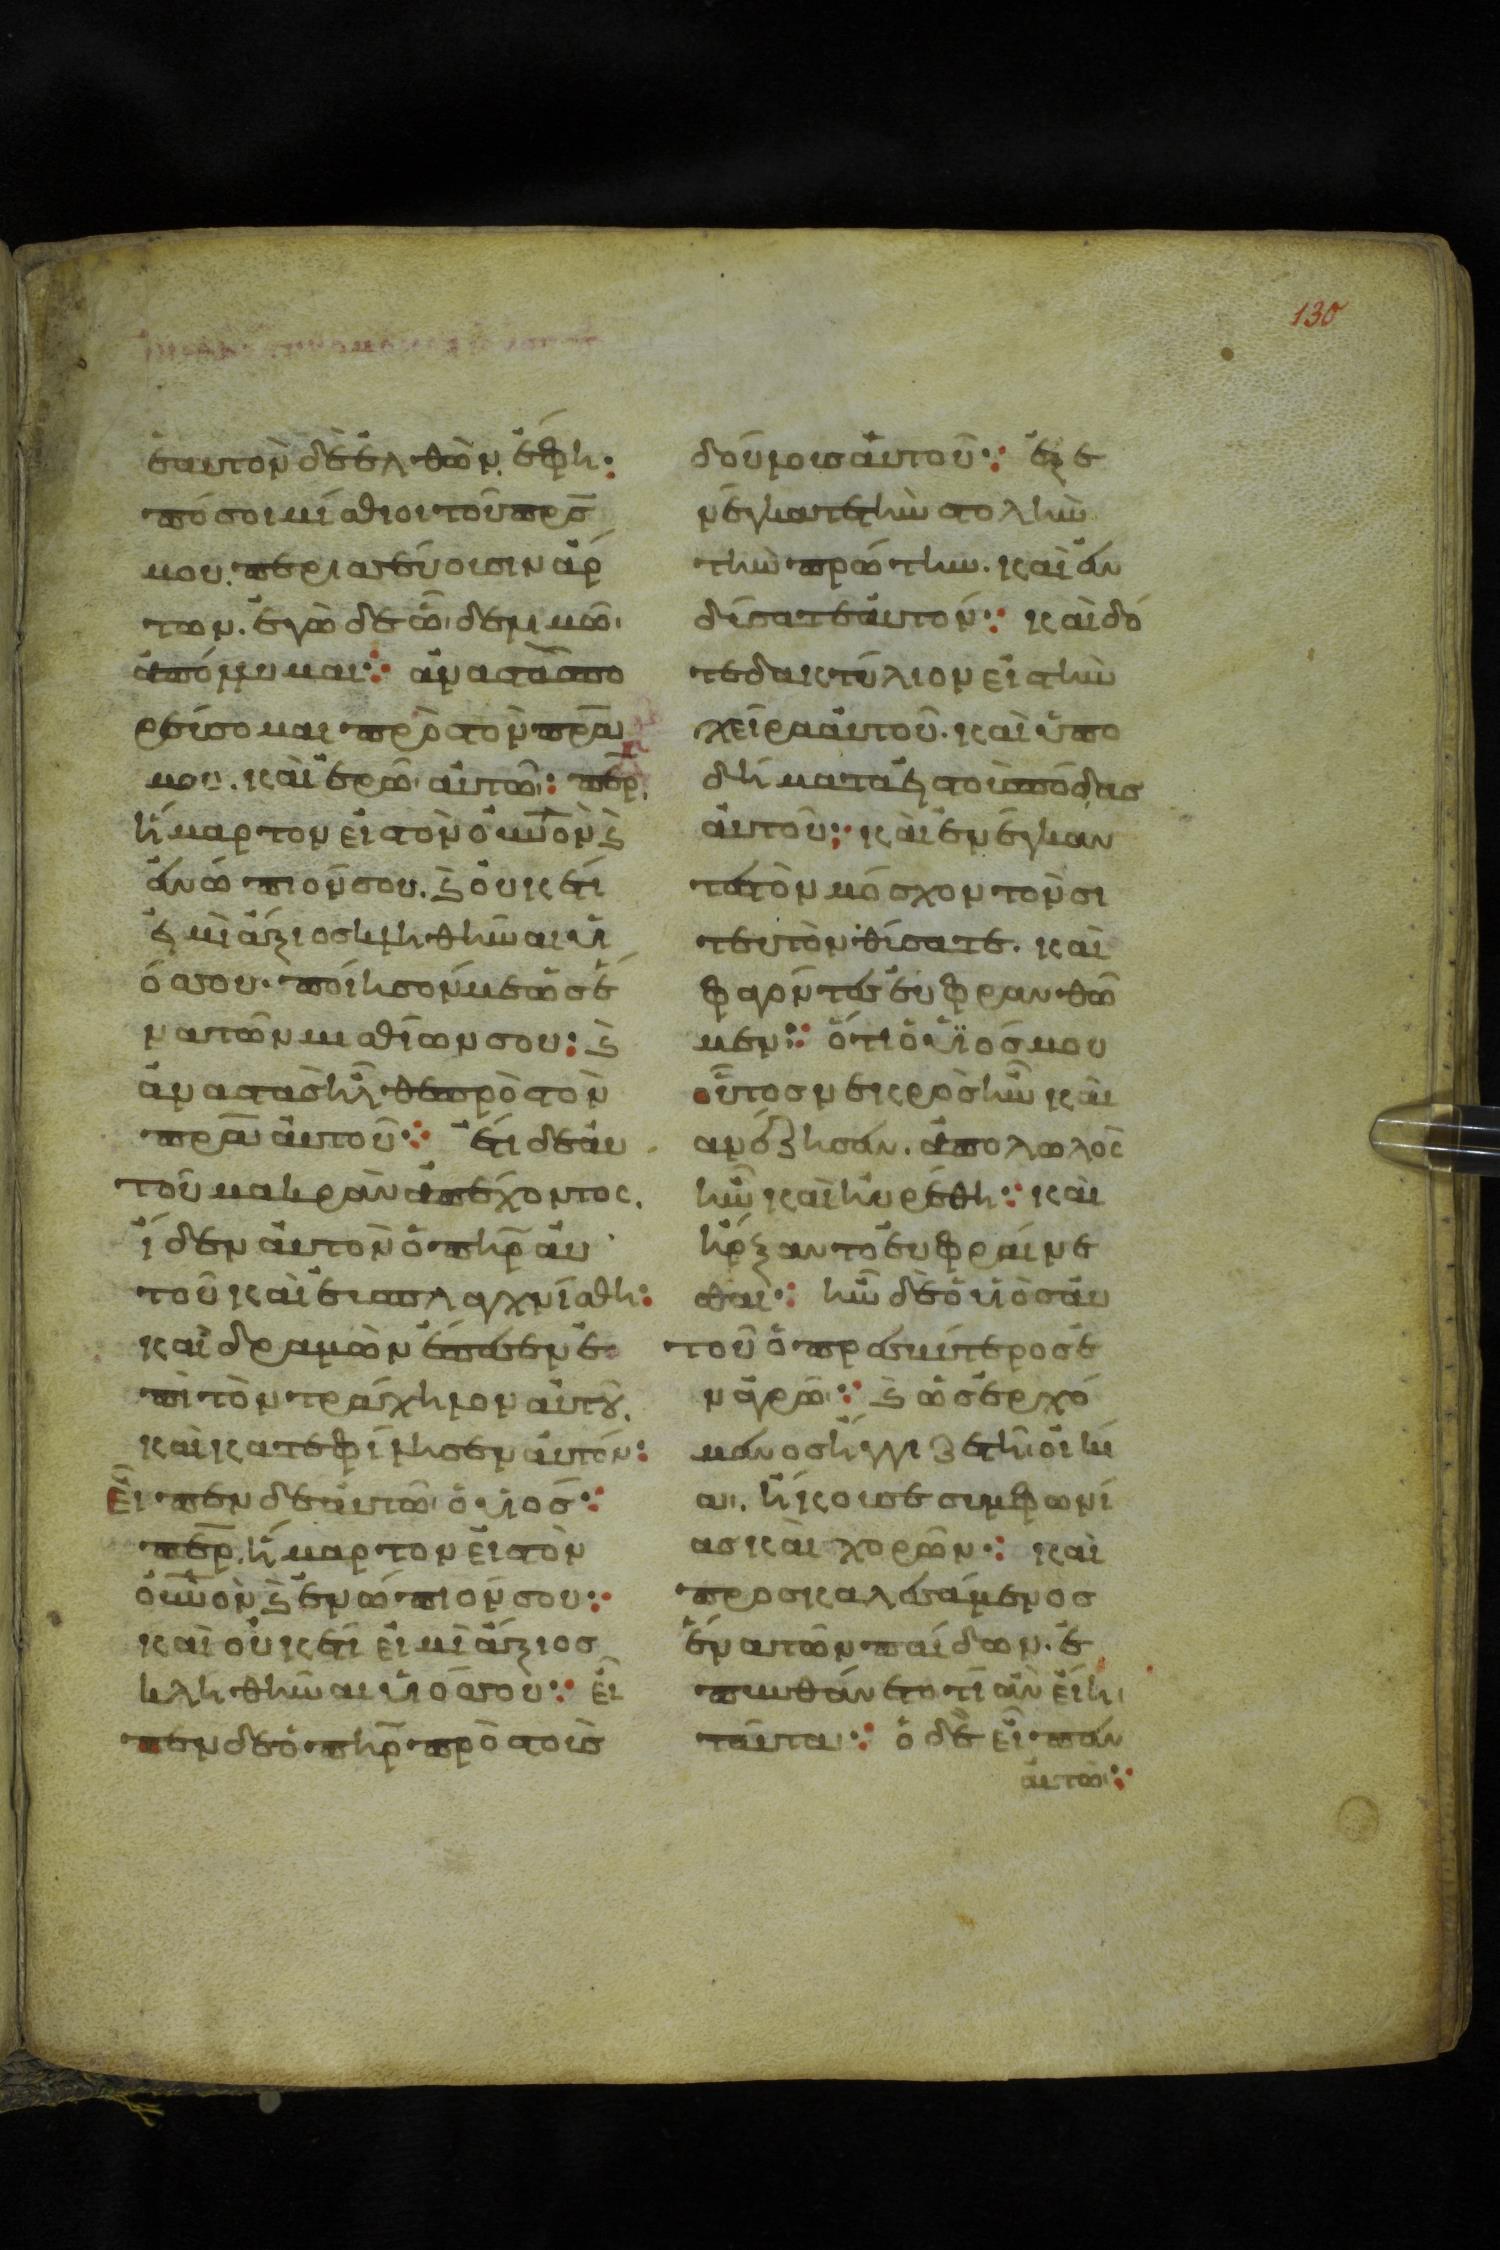 130
ἑαυτὸν δὲ ἐλθὼν. ἔφη:
πόσοι μίσθιοι τοῦ πρ̅σ
μου. περισσεύουσιν ἄρ
των. ἐγὼ δὲ ὧδε λιμῶ
ἀπόλλυμαι· ἀναστὰς πο
ρεύσομαι πρὸς τὸν πρ̅α
μου. καὶ ἐρῶ αὐτῶ: περ̅.
ἥμαρτον εἰς τὸν οὐν̅ον ϗ
ἐνώπιόν σου. ϗ οὐκέτι
εἰμὶ ἄξιος κληθῆναι υἱ
ός σου· ποίησόν με ὡς ἕ
να τῶν μισθίων σου: ϗ
ἀναστὰς ἦλθε πρὸς τὸν
πρ̅α αὐτοῦ· ἔτι δὲ αὐ
τοῦ μακρὰν ἀπέχοντος.
ἴδεν αὐτὸν ὁ πηρ̅ αὐ
τοῦ καὶ ἐυσπλαγχνίσθη:
καὶ δραμὼν ἐπέπεσεν ἐ
πὶ τὸν τράχηλον αὐτοῦ.
καὶ κατεφίλησεν αὐτόν:
Εἶπεν δὲ αὐτῶ ὁ υἱός·
περ̅. ἥμαρτον εἰς τὸν
οὐν̅ον ϗ ἐνώπιόν σου·
καὶ οὐκέτι εἰμὶ ἄξιος
κληθῆναι υἱός σου· εἶ
πεν δὲ ὁ πηρ̅ πρὸς τοὺς
δούλους αὐτοῦ· ἐξε
νέγκατε τὴν στολὴν
τὴν πρώτην. καὶ ἐν
δύσατε αὐτόν· καὶ δό
τε δακτύλιον εἰς τὴν
χεῖρα αὐτοῦ. καὶ ὑπο
δήματα εἰς τοὺς πόδας
αὐτοῦ· καὶ ἐνέγκαν
τες τὸν μόσχον τὸν σι
τευτὸν θύσατε. καὶ
φαγόντες εὐφρανθῶ
μεν· ὅτι ὁ υἱός μου
οὗτος νεκρὸς ἦν καὶ
ἀνέζησεν. ἀπολωλὸς
ἦν καὶ ηὑρέθη· καὶ
ἤρξαντο εὐφραίνε
σθαι· ἦν δὲ ὁ υἱὸς αὐ
τοῦ ὁ πρεσβύτερος ἐ
ν ἀγρῶ· ϗ ὡς ἐρχό
μενος ἤγγιζε τῆ οἰκί
α. ἤκουσε συμφωνί
ας καὶ χορῶν· καὶ
προσκαλεσάμενος
ἕνα τῶν παίδων. ἐ
πυνθάνετο τί ἂν εἴη
ταῦτα· ὁ δὲ εἶπεν
αὐτῶ·